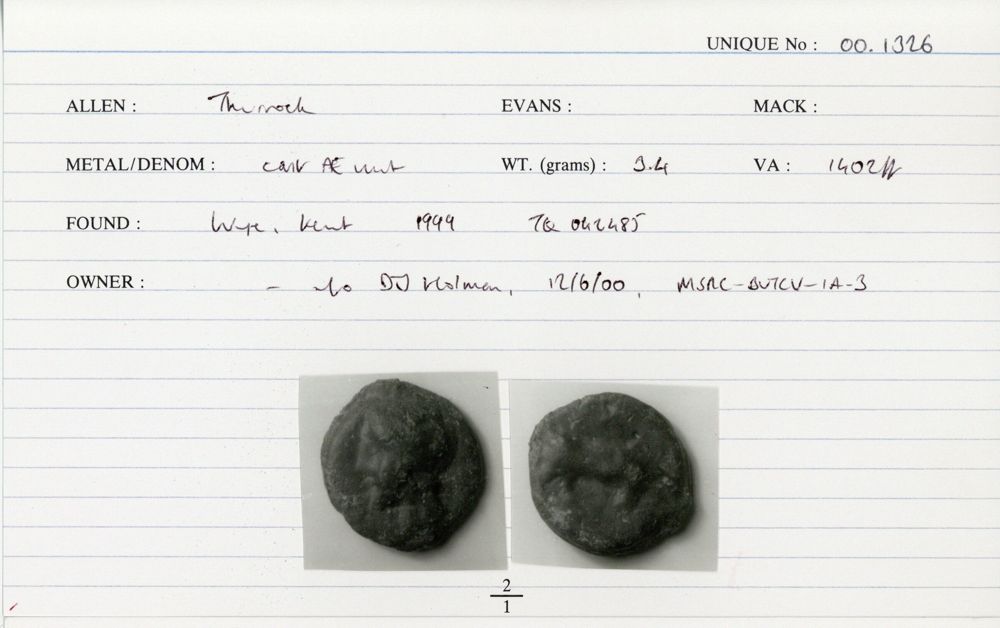 UNIQUE No : 00.1326
ALLEN : Thurrock EVANS : MACK :
METAL/DENOM : cast Æ unit WT. (grams) : 3.4 VA : 1402ff
FOUND : Wye, Kent 1999 TR 042485
OWNER : - DJ Holman, 12/6/00, MSRC-BUTCV-1A-3
2
1